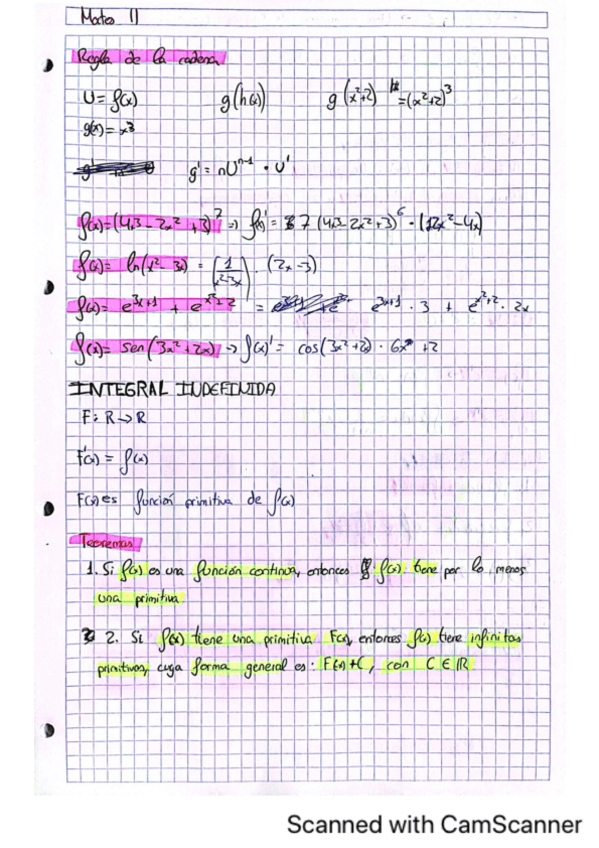 Mates II
Regla de la cadena
U = f(x) g(h(x)) g(x²+2) = (x²+2)³
g(x) = x³
g' = nUⁿ⁻¹ · U'
f(x) = (4x3 - 2x² + 3)⁷ => f(x)' = 7 (4x3 - 2x² + 3)⁶ · (12x² - 4x)
f(x) = ln(x² - 3x) = (1/x²-3x) · (2x-3)
f(x) = e³ˣ⁺¹ + eˣ²⁺² = e³ˣ⁺¹ · 3 + eˣ²⁺² · 2x
f(x) = sen(3x² + 2x) → f(x)' = cos(3x² + 2x) · 6x + 2
INTEGRAL INDEFINIDA
F: R → R
F'(x) = f(x)
F(x) es función primitiva de f(x)
Teoremas
1. Si f(x) es una función continua, entonces f(x) tiene por lo menos
una primitiva
2. Si f(x) tiene una primitiva F(x), entonces f(x) tiene infinitas
primitivas, cuya forma general es: F(x) + C, con C ∈ ℝ
Scanned with CamScanner